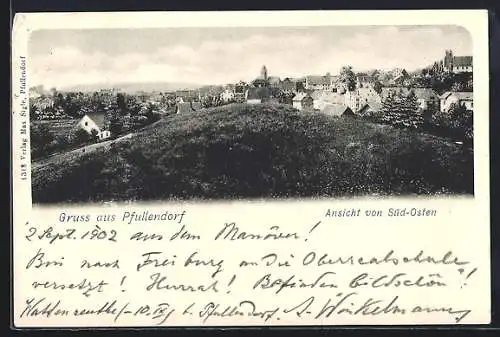 1318 Verlag Max Sigle, Pfullendorf
Gruss aus Pfullendorf
Ansicht von Süd-Osten
2 Sept. 1902 aus dem Manöver!
Bin nach Freiburg an die Oberrealschule
versetzt! Hurrah! Befinden bildschön!
Hattenreuthe (-10.IX) b. Pfullendorf. A. Winkelmann